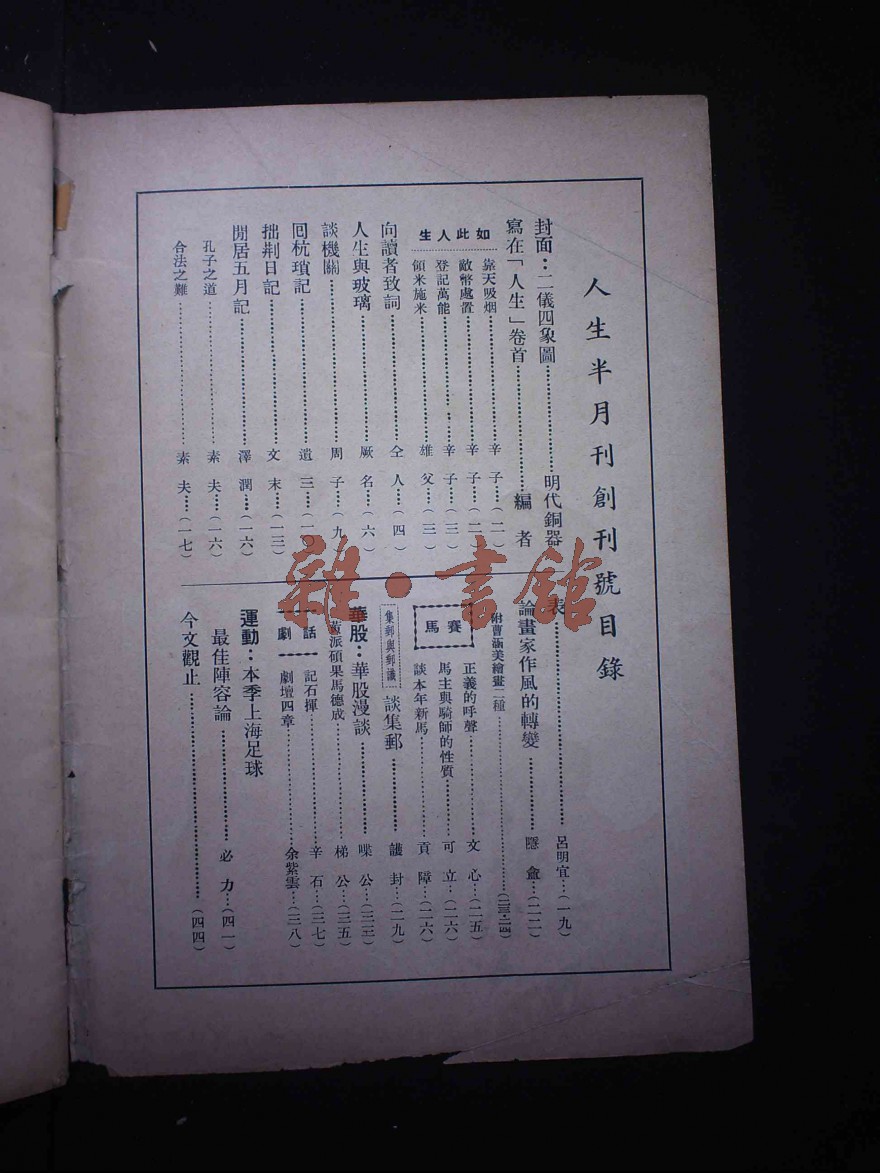 人生半月刊創刊號目錄
封面：二儀四象圖……明代銅器
寫在「人生」卷首……編者
如此人生
靠天吸烟……辛子……(二)
敵幣處置……辛子……(二)
登記萬能……辛子……(三)
領米施米……雄父……(三)
向讀者致詞……仝人……(四)
人生與玻璃……厥名……(六)
談機關……周子……(九)
回杭瑣記……遺三……(一〇)
拙荆日記……文末……(一三)
閒居五月記……澤潤……(一六)
孔子之道……素夫……(一六)
合法之難……素夫……(一七)
表……呂明宜…(一九)
論畫家作風的轉變……隱盦…(二二)
附曹涵美繪畫二種……(二三·二四)
賽馬
正義的呼聲……文心…(二五)
馬主與騎師的性質……可立…(二六)
談本年新馬……貢障…(二六)
集郵與郵識
談集郵……護封…(二九)
華股：華股漫談……喋公…(三三)
黃派碩果馬德成……梯公…(三五)
劇話
記石揮……辛石…(三七)
劇壇四章……余紫雲…(三八)
運動：本季上海足球
最佳陣容論……必力…(四一)
今文觀止……(四四)
雜·書館